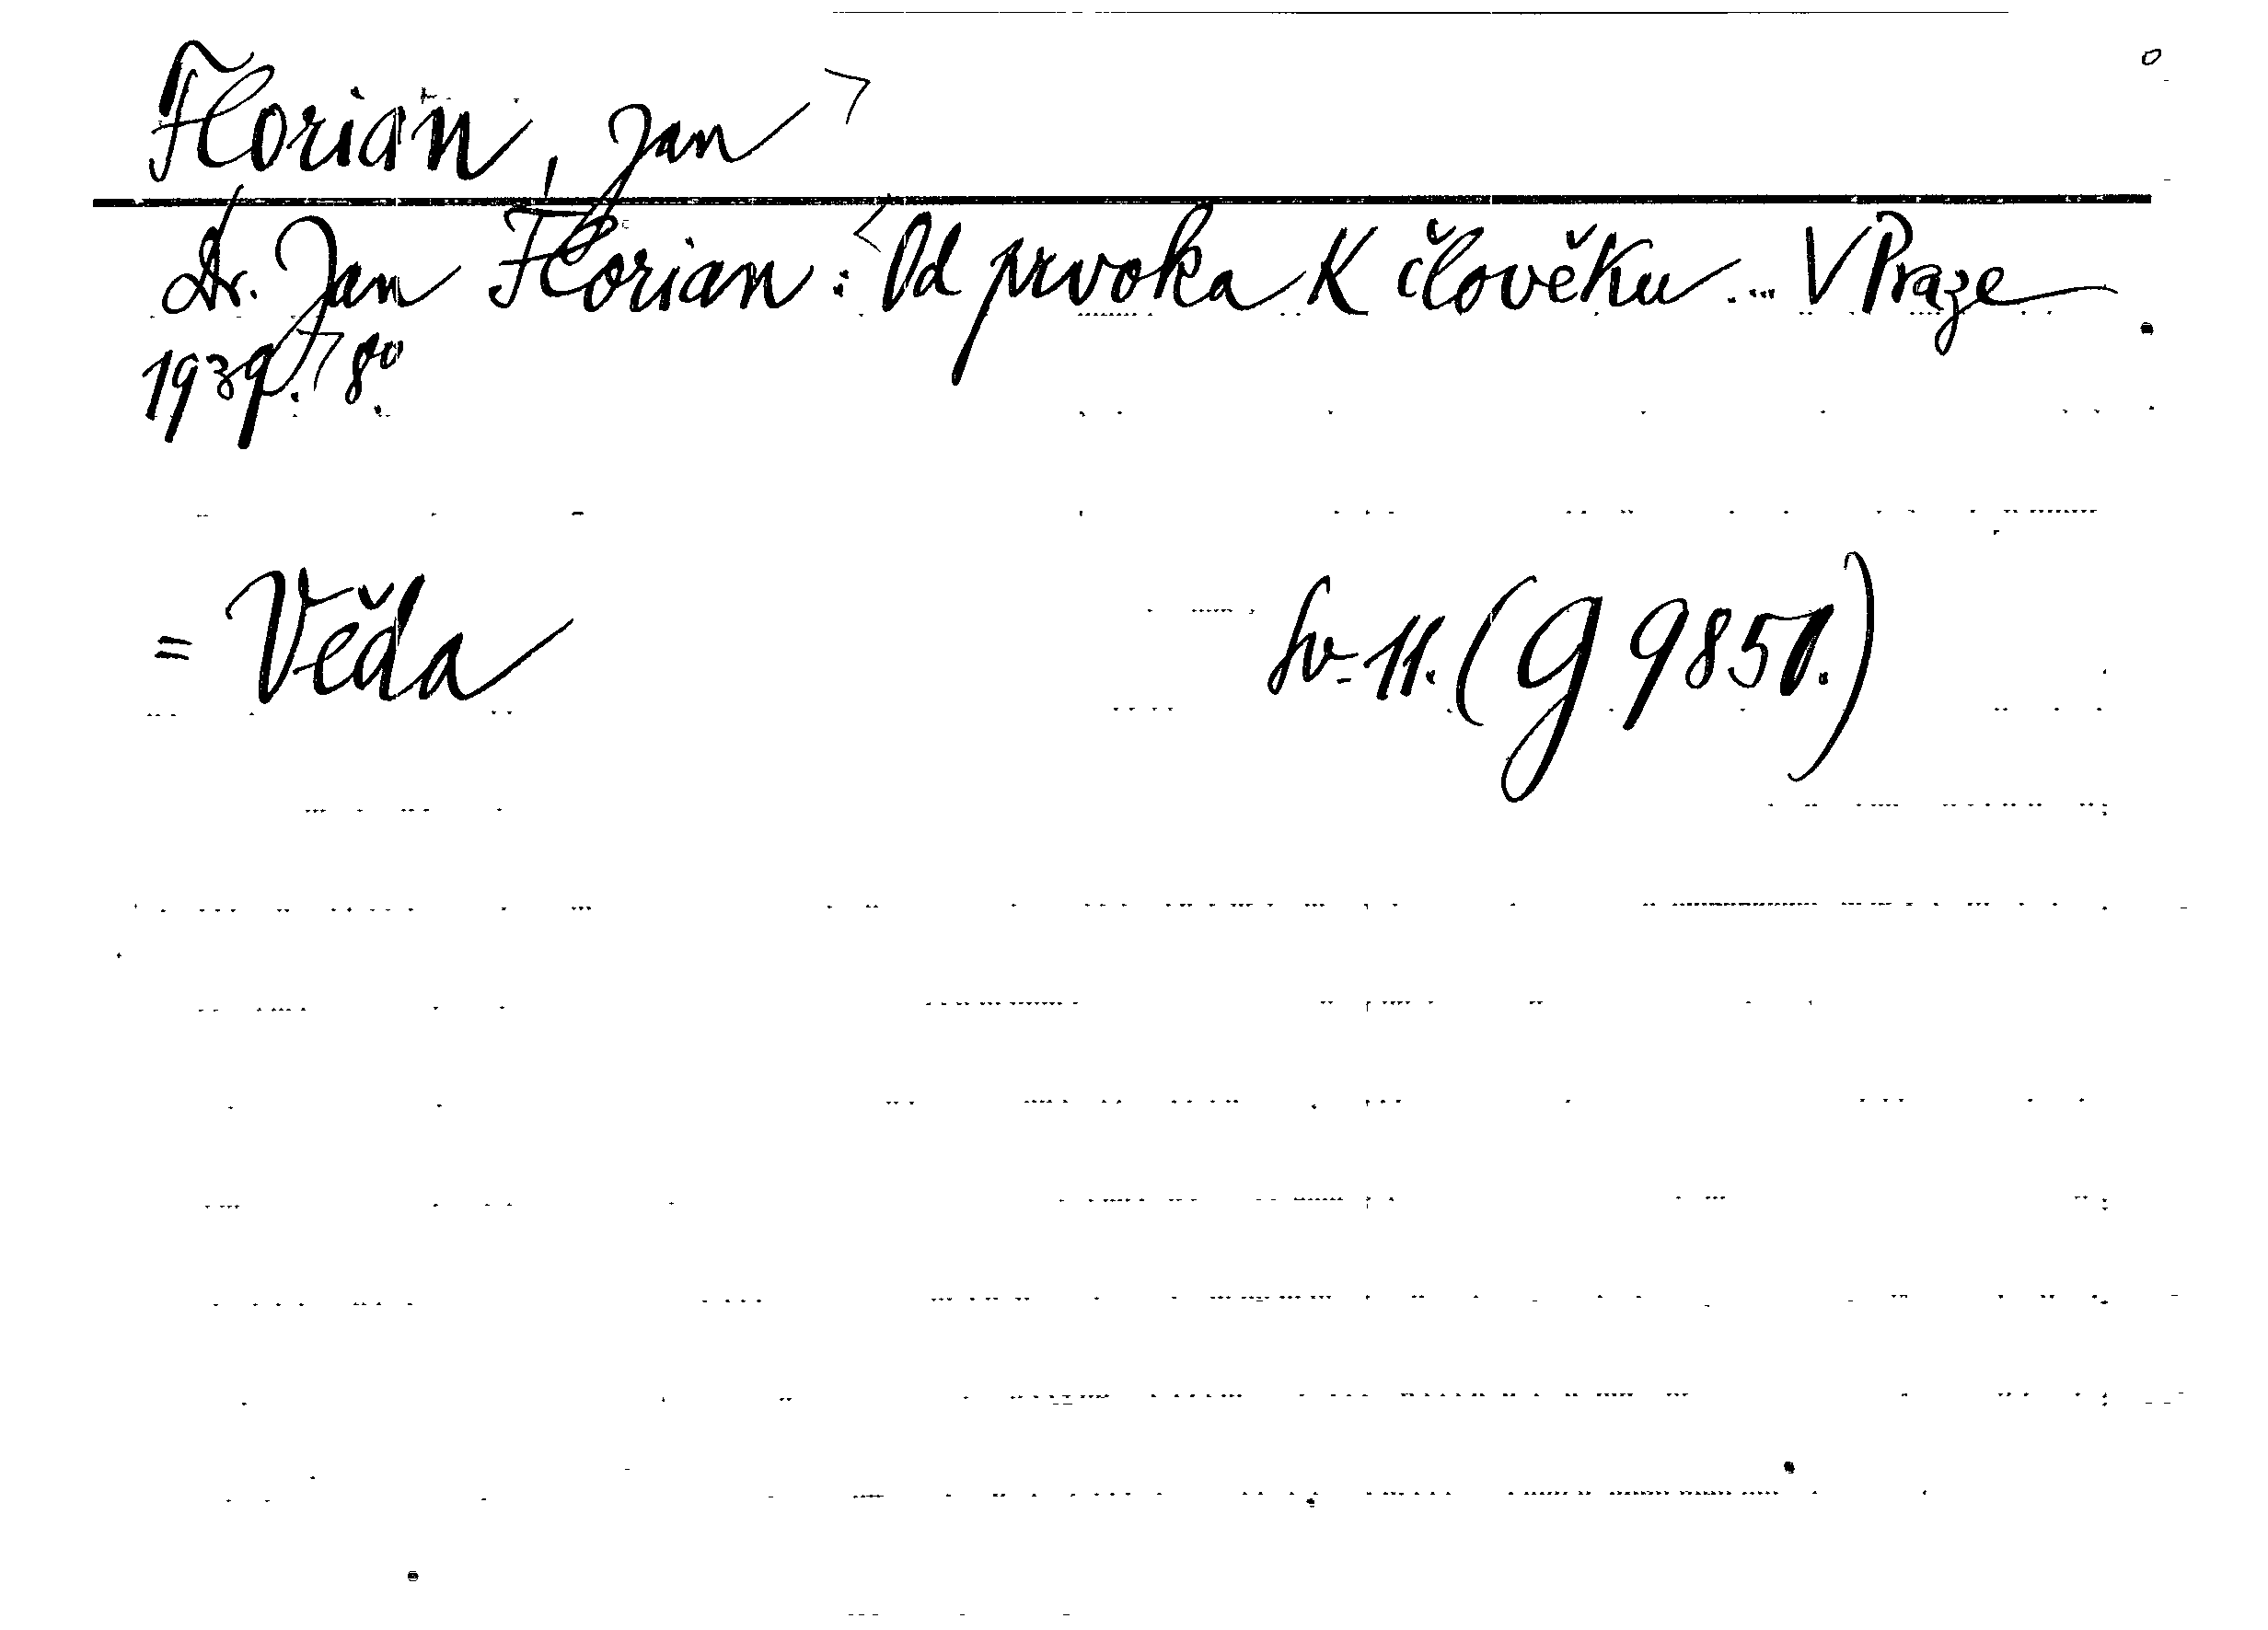 Florian, Jan
Dr. Jan Florian: Od prvoka k člověku... V Praze
1939. 8°.
= Věda sv. 11. (G 9850.)